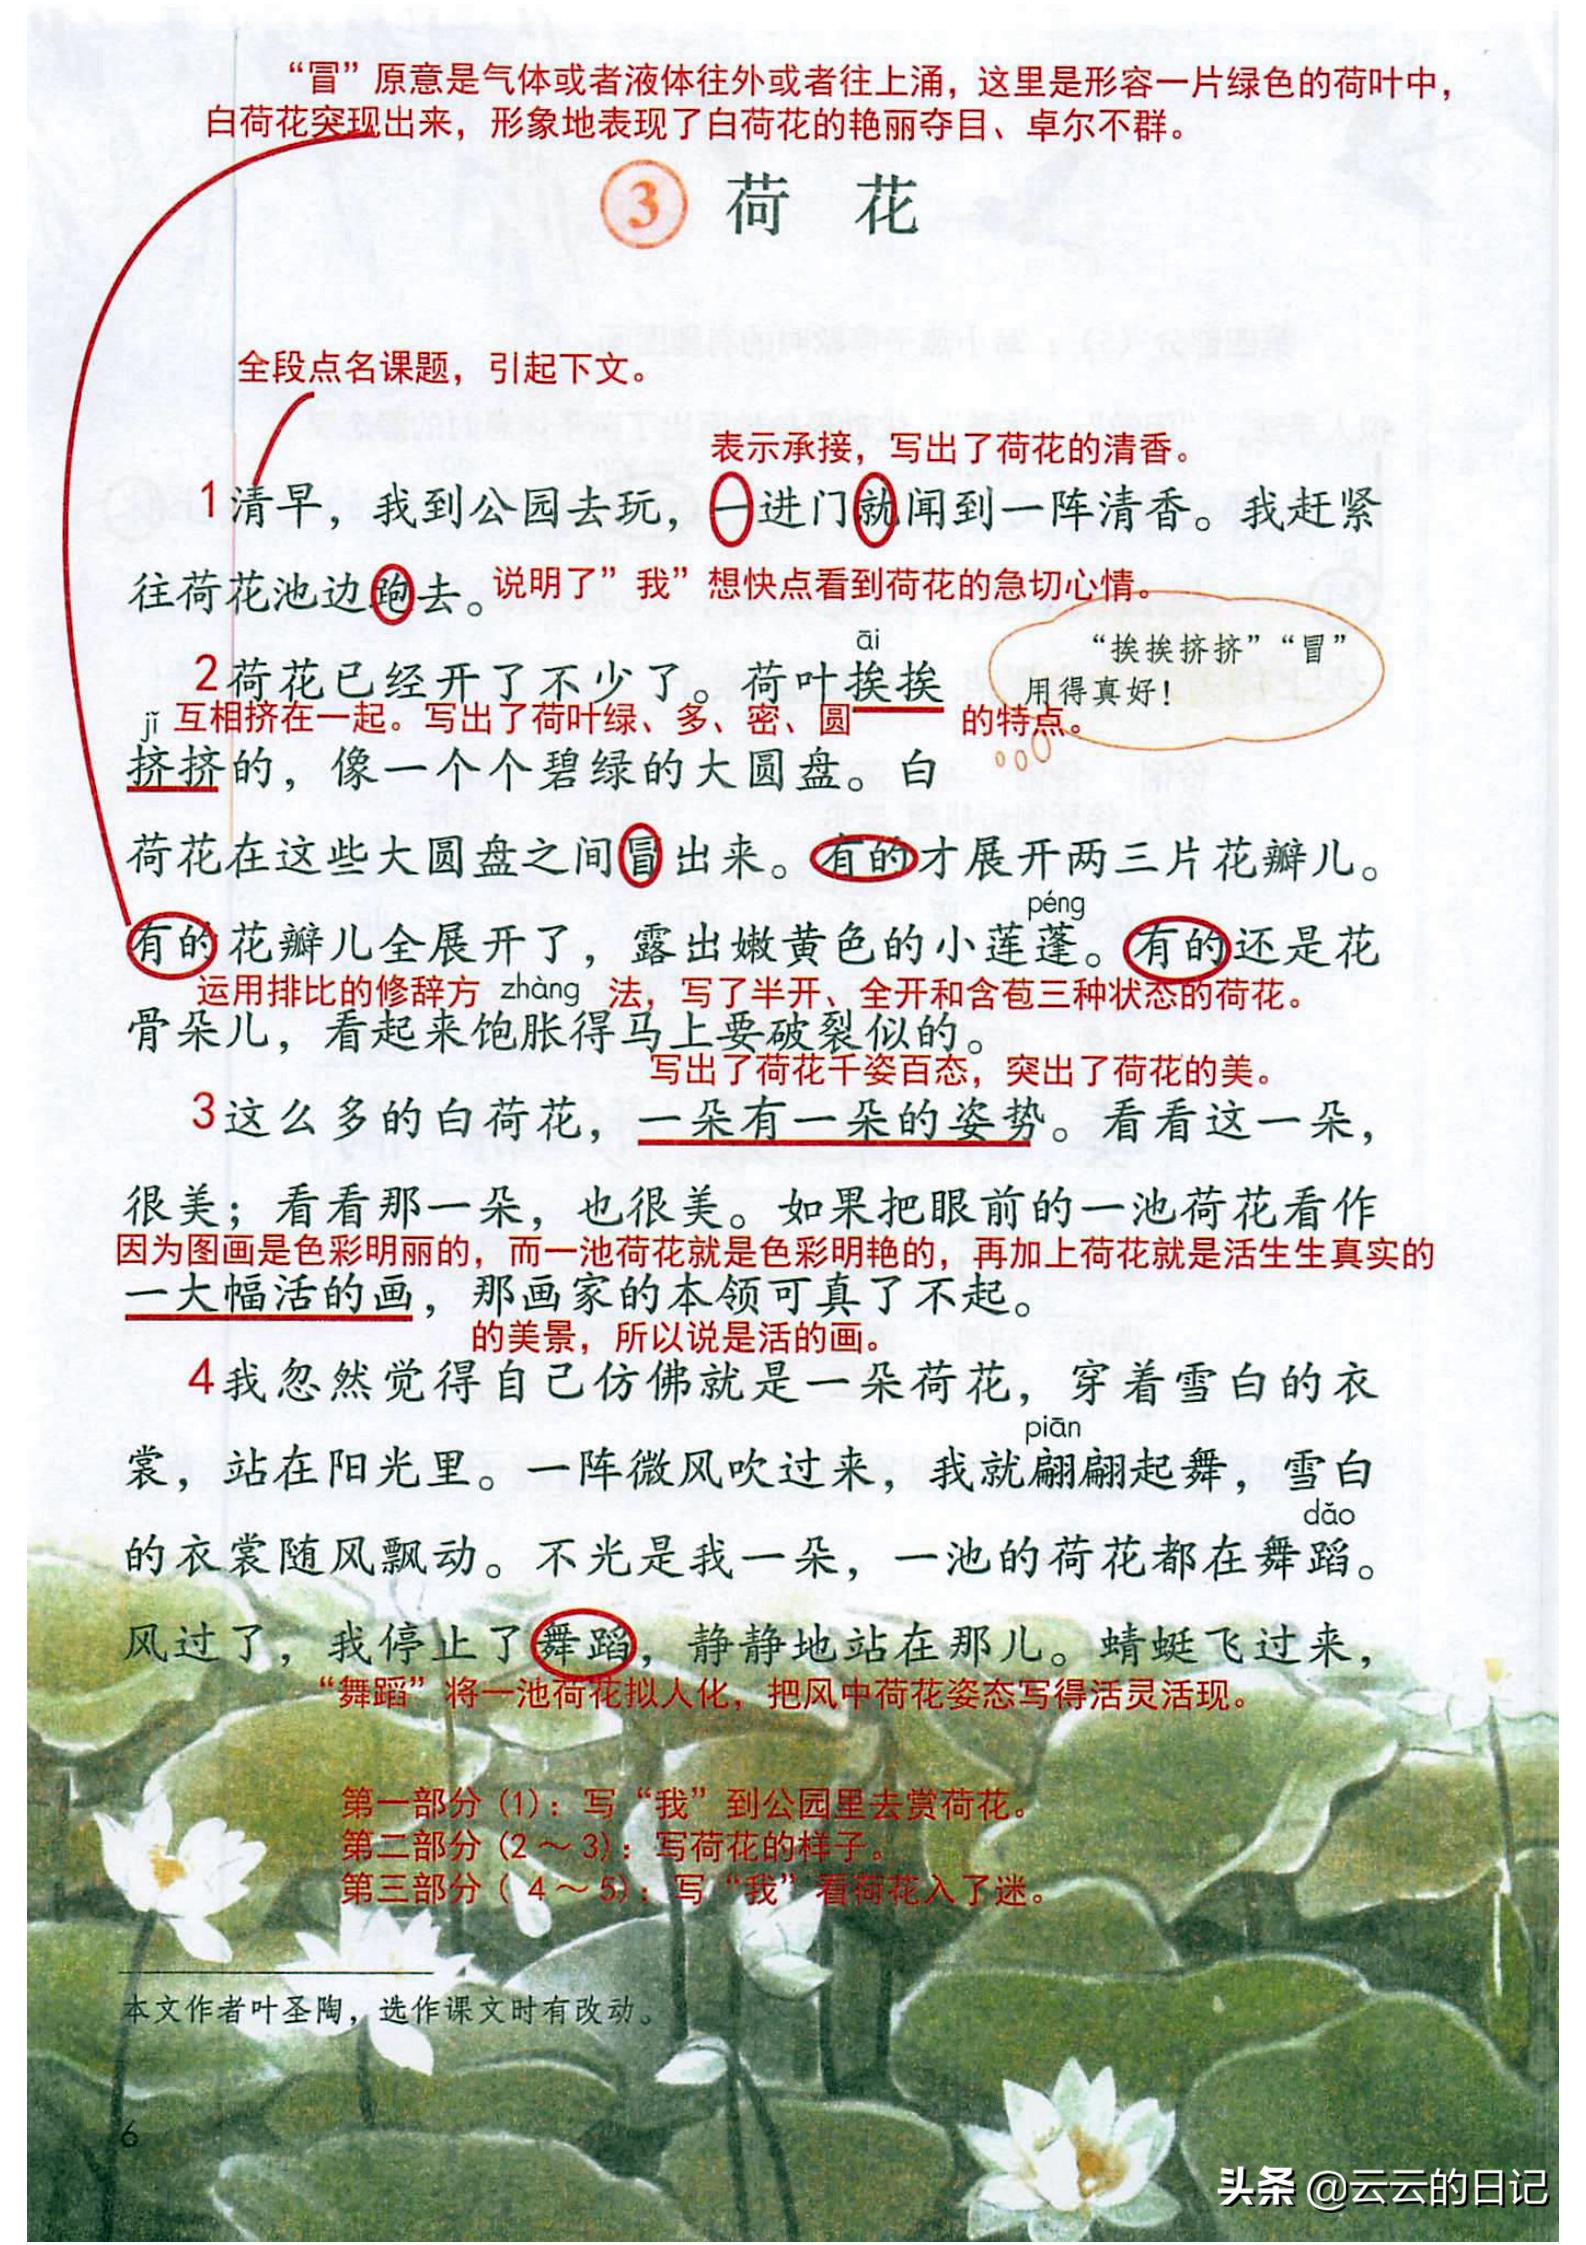 “冒”原意是气体或者液体往外或者往上涌，这里是形容一片绿色的荷叶中，
白荷花突现出来，形象地表现了白荷花的艳丽夺目、卓尔不群。
3 荷 花
全段点名课题，引起下文。
表示承接，写出了荷花的清香。
1清早，我到公园去玩，一进门就闻到一阵清香。我赶紧
往荷花池边跑去。说明了”我”想快点看到荷花的急切心情。
āi
“挨挨挤挤”“冒”
用得真好！
2荷花已经开了不少了。荷叶挨挨
jǐ 互相挤在一起。写出了荷叶绿、多、密、圆 的特点。
挤挤的，像一个个碧绿的大圆盘。白
荷花在这些大圆盘之间冒出来。有的才展开两三片花瓣儿。
péng
有的花瓣儿全展开了，露出嫩黄色的小莲蓬。有的还是花
运用排比的修辞方 zhàng 法，写了半开、全开和含苞三种状态的荷花。
骨朵儿，看起来饱胀得马上要破裂似的。
写出了荷花千姿百态，突出了荷花的美。
3这么多的白荷花，一朵有一朵的姿势。看看这一朵，
很美；看看那一朵，也很美。如果把眼前的一池荷花看作
因为图画是色彩明丽的，而一池荷花就是色彩明艳的，再加上荷花就是活生生真实的
一大幅活的画，那画家的本领可真了不起。
的美景，所以说是活的画。
4我忽然觉得自己仿佛就是一朵荷花，穿着雪白的衣
piān
裳，站在阳光里。一阵微风吹过来，我就翩翩起舞，雪白
dǎo
的衣裳随风飘动。不光是我一朵，一池的荷花都在舞蹈。
风过了，我停止了舞蹈，静静地站在那儿。蜻蜓飞过来，
“舞蹈”将一池荷花拟人化，把风中荷花姿态写得活灵活现。
第一部分（1）：写“我”到公园里去赏荷花。
第二部分（2～3）：写荷花的样子。
第三部分（4～5）：写“我”看荷花入了迷。
本文作者叶圣陶，选作课文时有改动。
6
头条 @云云的日记